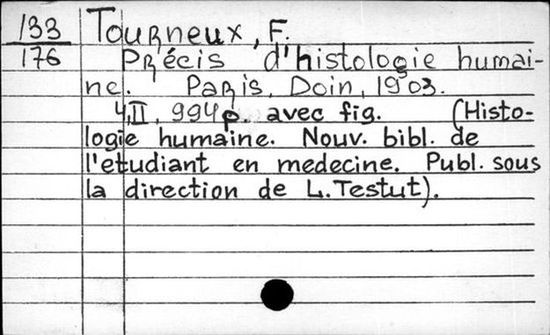 133 Tourneux, F.
176 Précis d'histologie humai-
ne. Paris, Doin, 1903.
4,II, 994p. avec fig. (Histo-
logie humaine. Nouv. bibl. de
l'etudiant en medecine. Publ. sous
la direction de L. Testut).